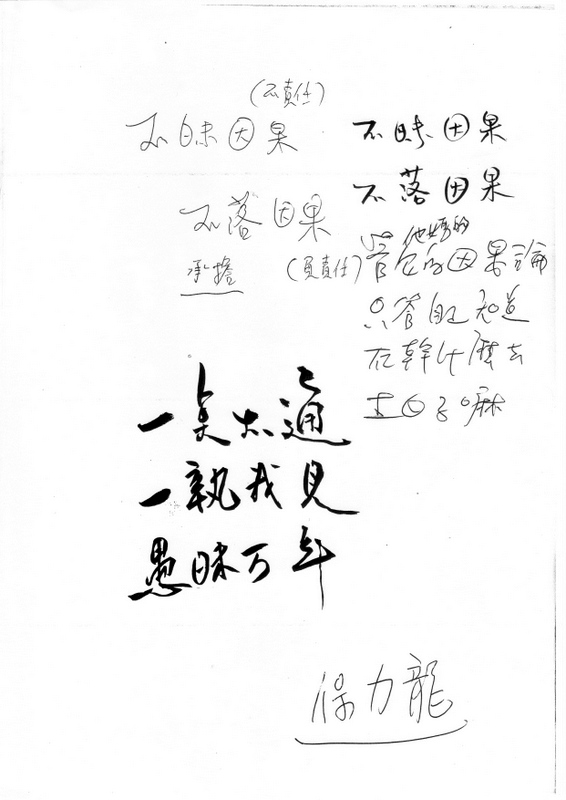 (不責任)
不昧因果
不落因果
承擔 (負責任)
不昧因果
不落因果
他媽的
管它的因果論
只管自己知道
在幹什麼去
不通
一執我見
愚昧万年
保力龍